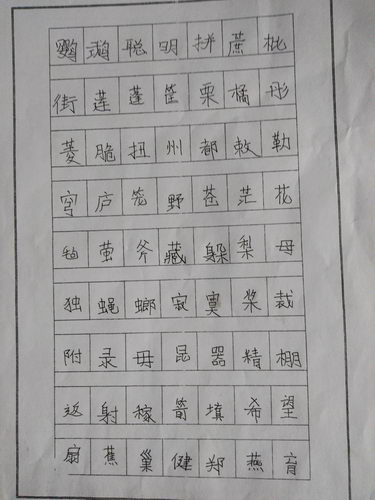 鹦鹉聪明拼蔗枇
街莲蓬筐栗橘彤
菱脆扭州都敕勒
穹庐笼野苍茫花
萤斧藏躲梨母
独蝇螂寂寞桨裁
附录毋昆器精棚
返射稼箭填希望
扇蕉巢健郑燕育